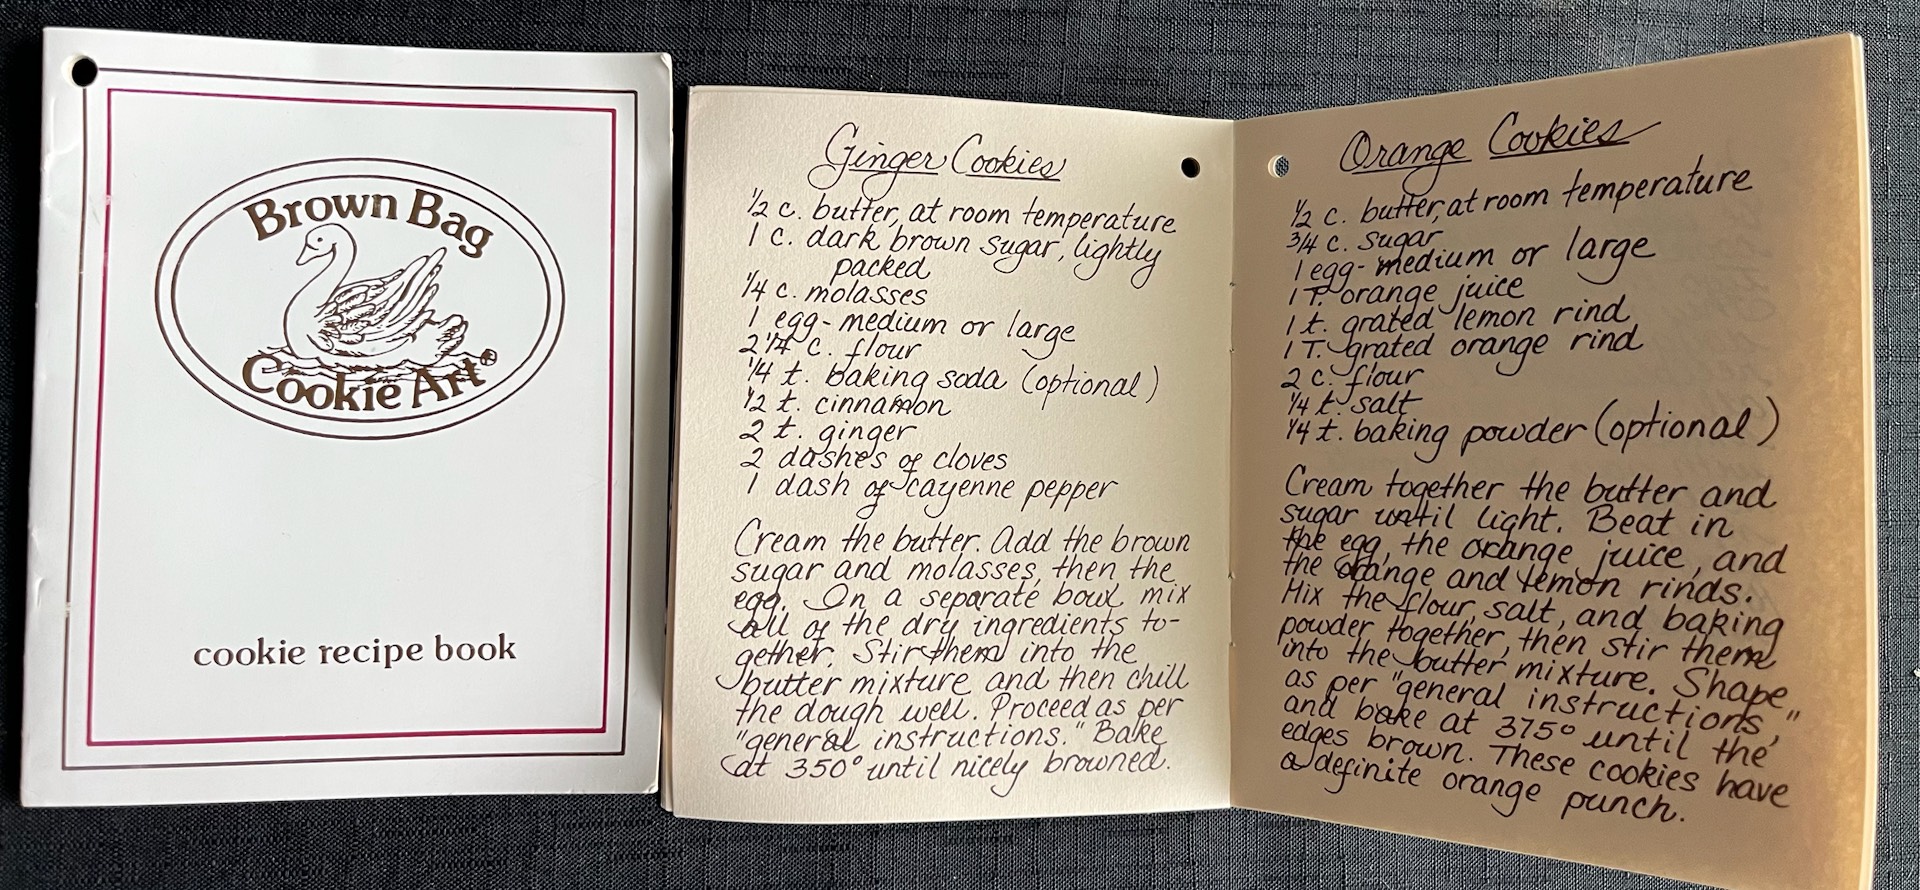 Brown Bag
Cookie Art®
cookie recipe book
Ginger Cookies
½ c. butter, at room temperature
1 c. dark brown sugar, lightly
packed
¼ c. molasses
1 egg - medium or large
2 ¼ c. flour
¼ t. baking soda (optional)
½ t. cinnamon
2 t. ginger
2 dashes of cloves
1 dash of cayenne pepper
Cream the butter. Add the brown
sugar and molasses, then the
egg. In a separate bowl mix
all of the dry ingredients to-
gether. Stir them into the
butter mixture and then chill
the dough well. Proceed as per
"general instructions." Bake
at 350° until nicely browned.
Orange Cookies
½ c. butter, at room temperature
¾ c. sugar
1 egg - medium or large
1 T. orange juice
1 t. grated lemon rind
1 T. grated orange rind
2 c. flour
¼ t. salt
¼ t. baking powder (optional)
Cream together the butter and
sugar until light. Beat in
the egg, the orange juice, and
the orange and lemon rinds.
Mix the flour, salt, and baking
powder together, then stir them
into the butter mixture. Shape
as per "general instructions,"
and bake at 375° until the
edges brown. These cookies have
a definite orange punch.